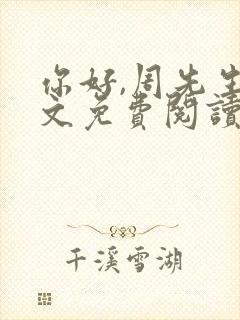 你好,周先生
文免费閱讀
千溪雪湖